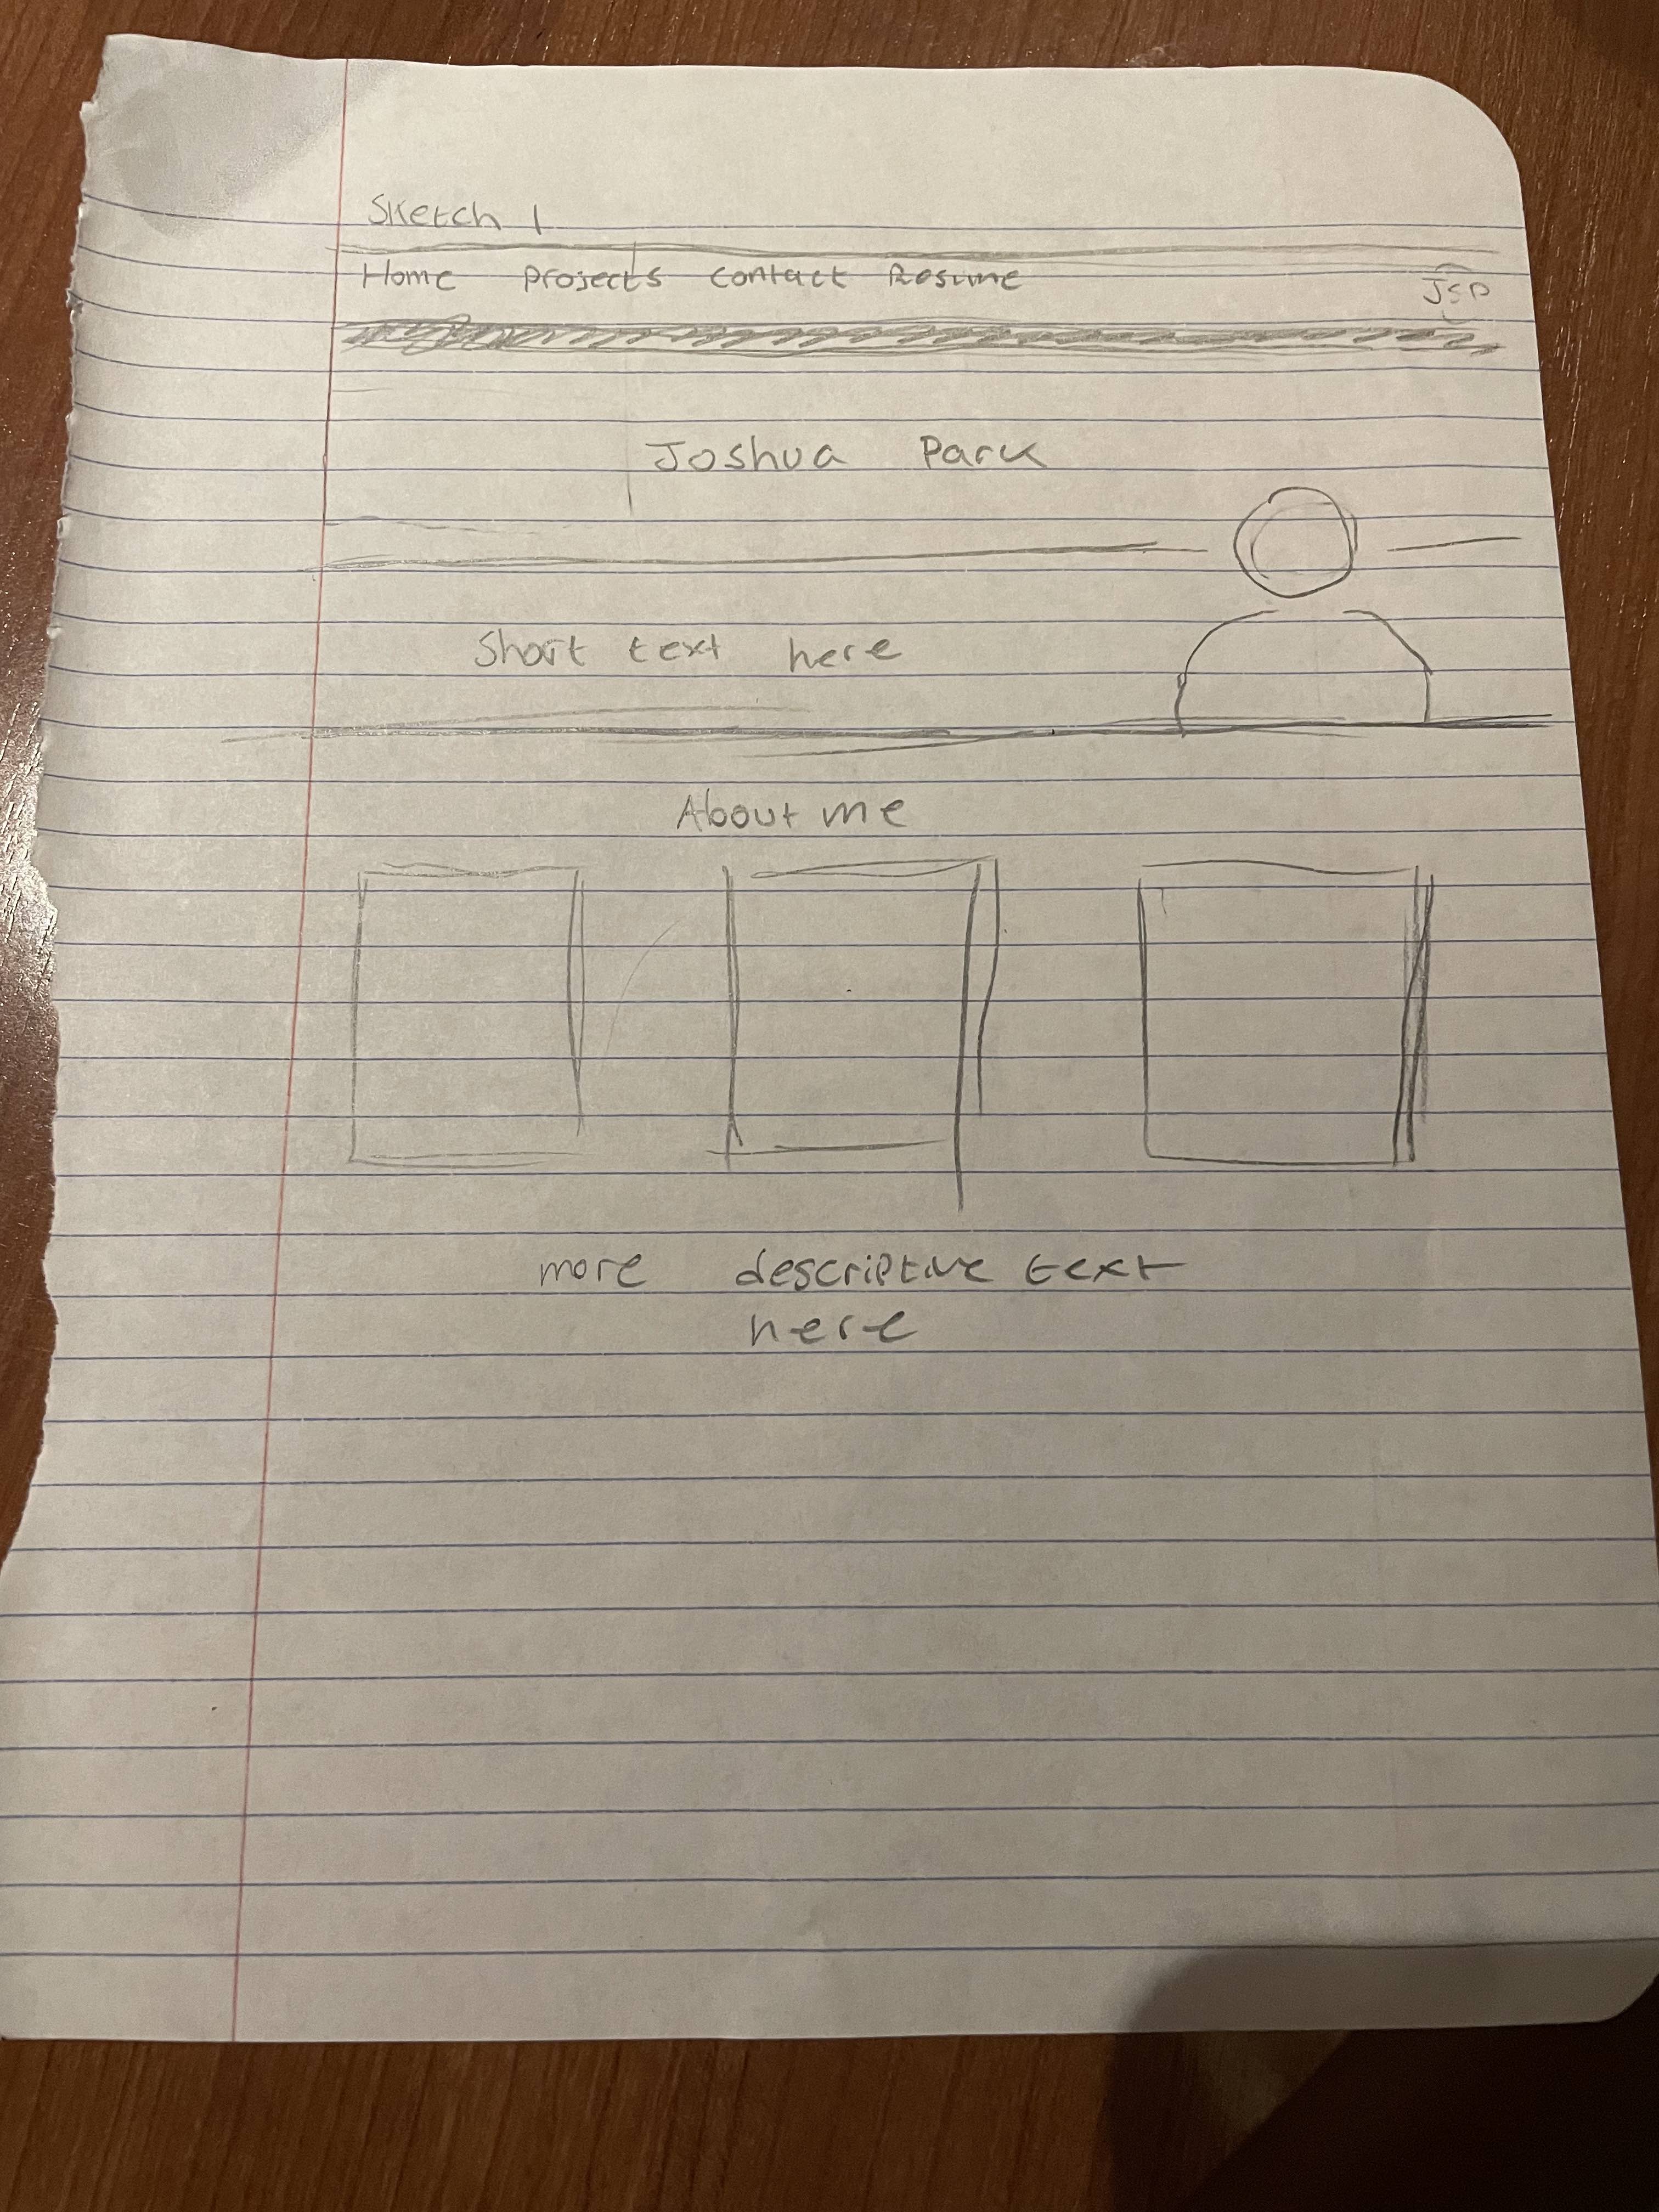 Sketch 1
Home Projects Contact Resume JSP
Joshua Park
Short text here
About me
more descriptive text
here